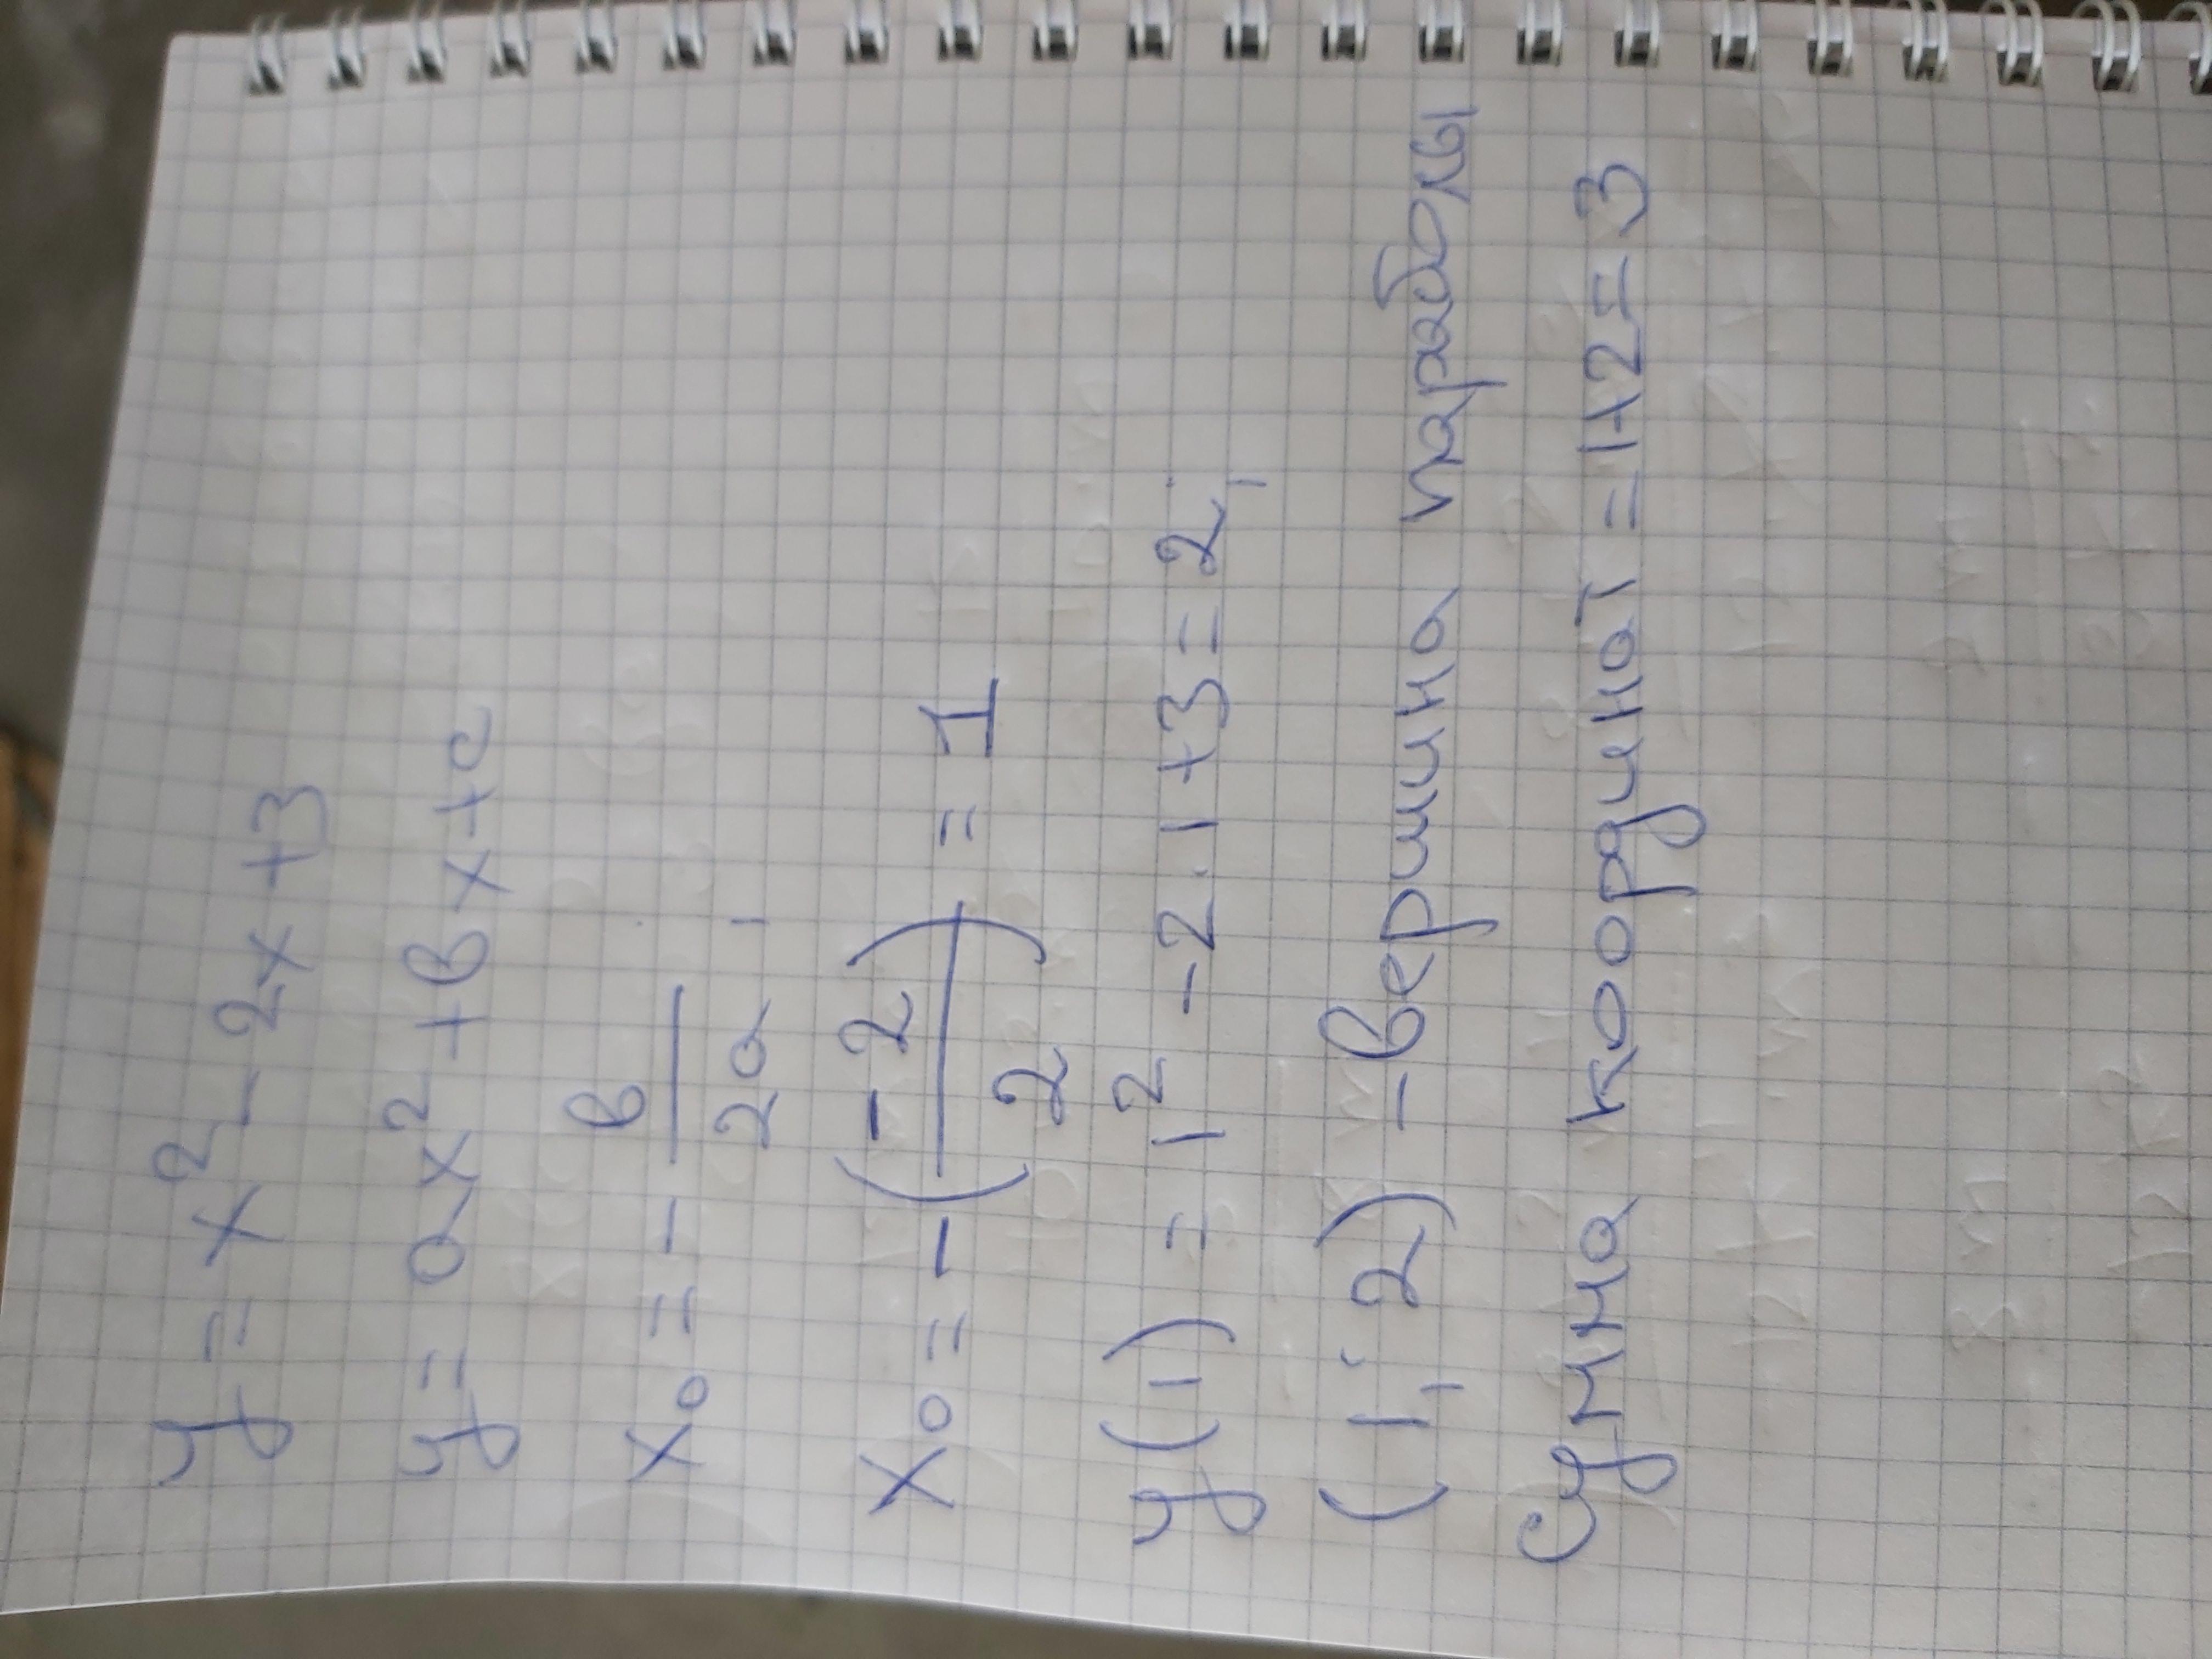 y = x² - 2x + 3
y = ax² + bx + c
x₀ = - b/2a ,
x₀ = - (-2/2) = 1
y(1) = 1² - 2·1 + 3 = 2;
(1; 2) - вершина параболы
Сумма координат = 1+2= 3